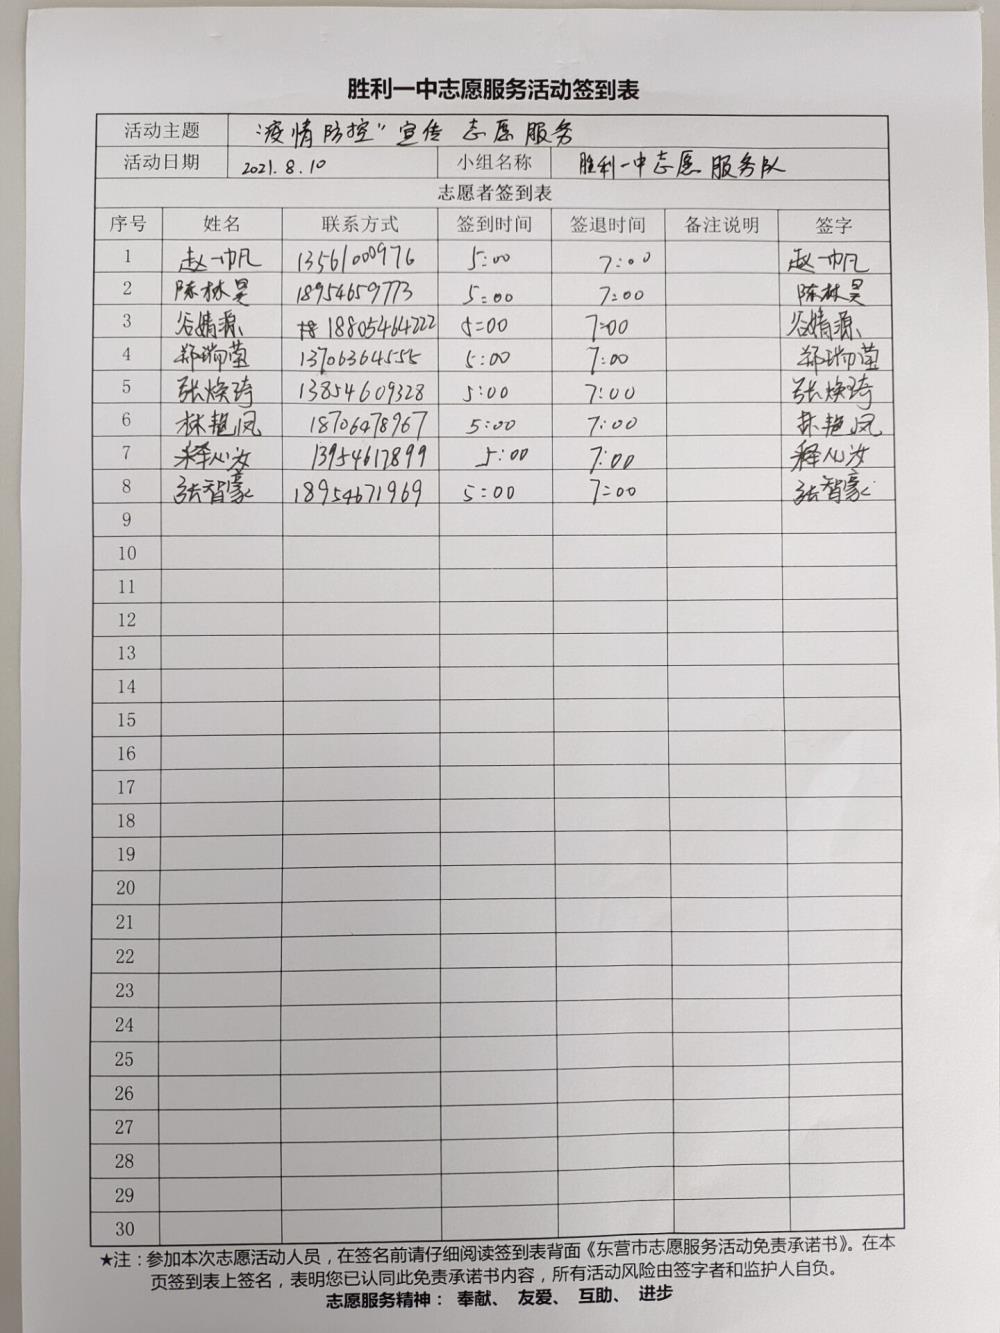 胜利一中志愿服务活动签到表
活动主题 “疫情防控”宣传 志愿服务
活动日期 2021.8.10 小组名称 胜利一中志愿服务队
志愿者签到表
序号 姓名 联系方式 签到时间 签退时间 备注说明 签字
1 赵一帆 13561000976 5:00 7:00 赵一帆
2 陈林昊 18954659773 5:00 7:00 陈林昊
3 谷婧源 18805464222 5:00 7:00 谷婧源
4 郑瑞莹 13706364555 5:00 7:00 郑瑞莹
5 张焕琦 13854609328 5:00 7:00 张焕琦
6 林艳凤 18706478967 5:00 7:00 林艳凤
7 释心汝 13954617899 5:00 7:00 释心汝
8 张智豪 18954671969 5:00 7:00 张智豪
9
10
11
12
13
14
15
16
17
18
19
20
21
22
23
24
25
26
27
28
29
30
★注：参加本次志愿活动人员，在签名前请仔细阅读签到表背面《东营市志愿服务活动免责承诺书》。在本
页签到表上签名，表明您已认同此免责承诺书内容，所有活动风险由签字者和监护人自负。
志愿服务精神： 奉献、 友爱、 互助、 进步